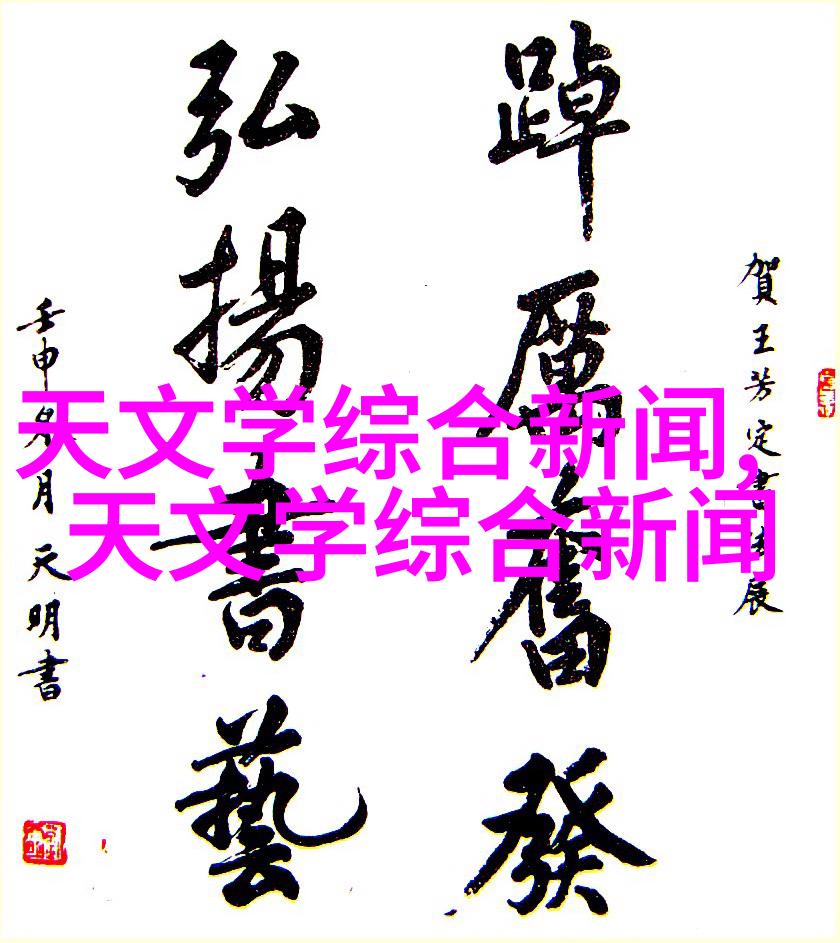 賀王芳定書法展
踔厲奮發
弘揚書藝
壬申年月天明書
天文学综合新闻,
天文学综合新闻